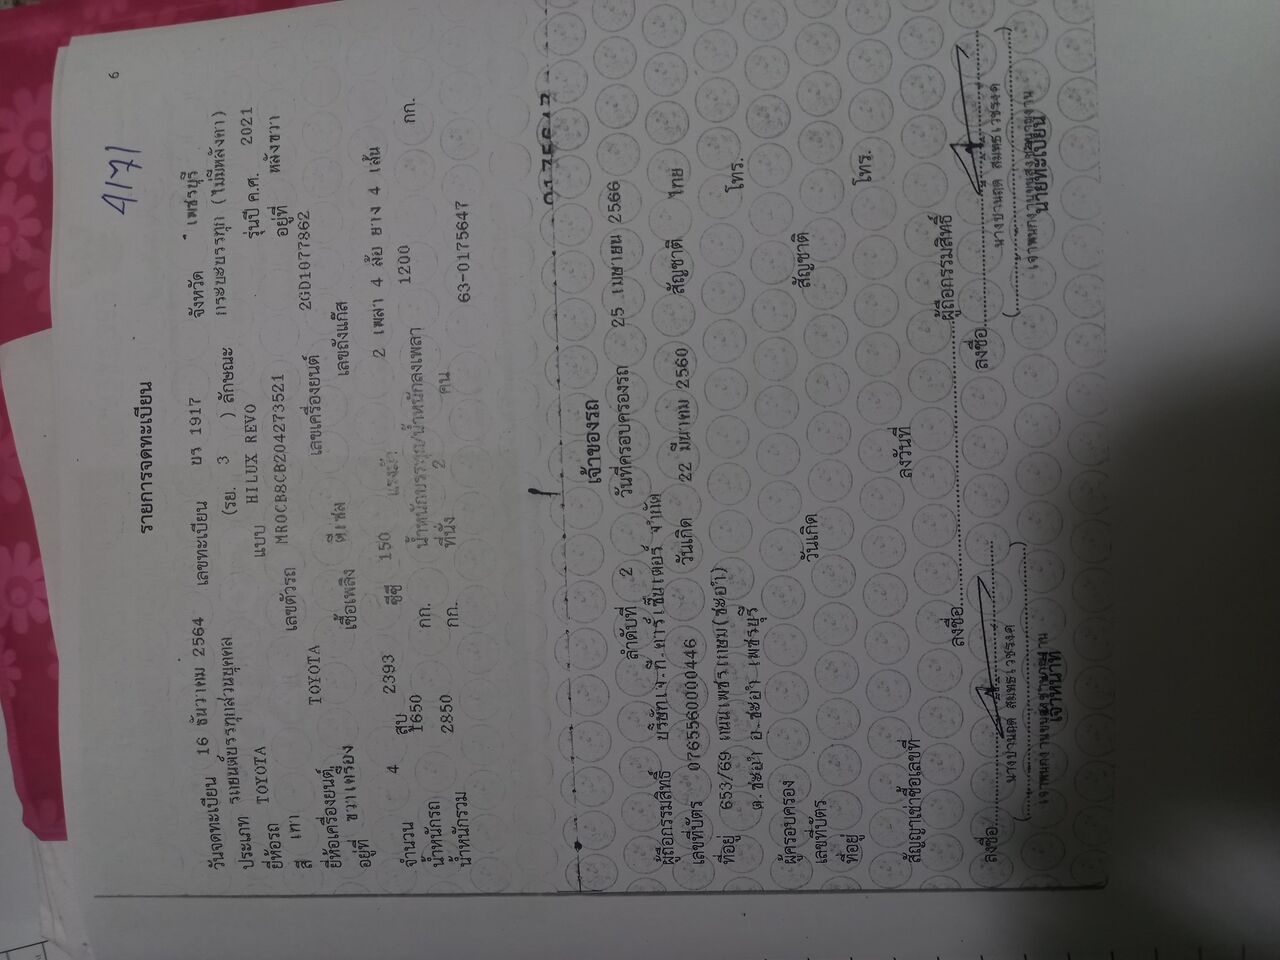 6
4171
รายการจดทะเบียน
วันจดทะเบียน 16 ธันวาคม 2564 เลขทะเบียน ขร 1917 จังหวัด เพชรบุรี
ประเภท รถยนต์บรรทุกส่วนบุคคล (รย. 3 ) ลักษณะ กระบะบรรทุก (ไม่มีหลังคา)
ยี่ห้อรถ TOYOTA แบบ HILUX REVO รุ่นปี ค.ศ. 2021
สี เทา เลขตัวรถ MR0CB8CB204273521 อยู่ที่ หลังขวา
ยี่ห้อเครื่องยนต์ TOYOTA เลขเครื่องยนต์ 2GD1077862
อยู่ที่ ขวาเครื่อง เชื้อเพลิง ดีเซล เลขถังแก๊ส
จำนวน 4 สูบ 2393 ซีซี 150 แรงม้า 2 เพลา 4 ล้อ ยาง 4 เส้น
น้ำหนักรถ 1650 กก. น้ำหนักบรรทุก/น้ำหนักลงเพลา 1200 กก.
น้ำหนักรวม 2850 กก. ที่นั่ง 2 คน
63-0175647
0175647
เจ้าของรถ
ลำดับที่ 2 วันที่ครอบครองรถ 25 เมษายน 2566
ผู้ถือกรรมสิทธิ์ บริษัทเจ.ที.คาร์เซ็นเตอร์ จำกัด
เลขที่บัตร 0765560000446 วันเกิด 22 มีนาคม 2560 สัญชาติ ไทย
ที่อยู่ 653/69 ถนนเพชรเกษม(ชะอำ) โทร.
ต.ชะอำ อ.ชะอำ เพชรบุรี
ผู้ครอบครอง
เลขที่บัตร วันเกิด สัญชาติ
ที่อยู่ โทร.
สัญญาเช่าซื้อเลขที่ ลงวันที่
ลงชื่อ ผู้ถือกรรมสิทธิ์
ลงชื่อ ลงชื่อ
เจ้าหน้าที่ นายทะเบียน